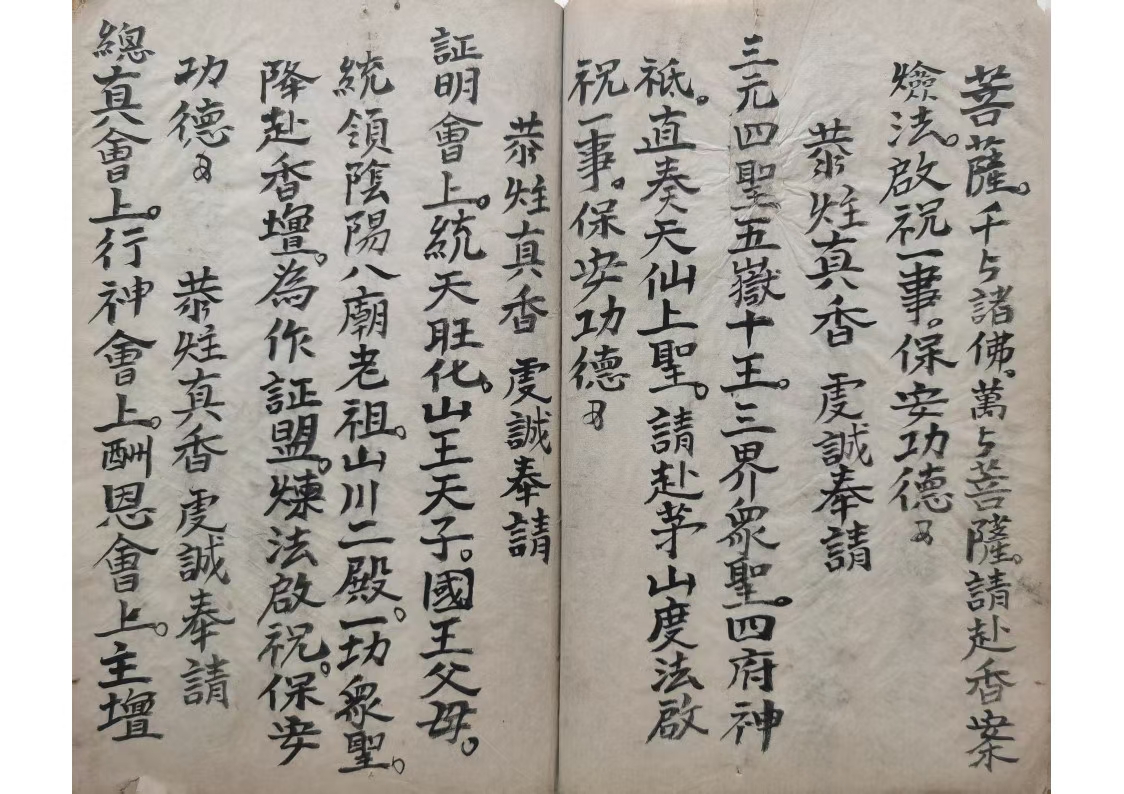 菩薩。千々諸佛。萬々菩薩。請赴香案
燒法。啟祝一事。保安功德又
恭炷真香 虔誠奉請
三元四聖五嶽十王。三界衆聖。四府神
祇。直奏天仙上聖。請赴茅山度法啟
祝一事。保安功德又
恭炷真香 虔誠奉請
証明會上。統天旺化。山王天子。國王父母。
統領陰陽八廟老祖。山川二殿。一功衆聖。
降赴香壇。為作証盟。煉法啟祝。保安
功德又 恭炷真香 虔誠奉請
總真會上。行神會上。酬恩會上。主壇